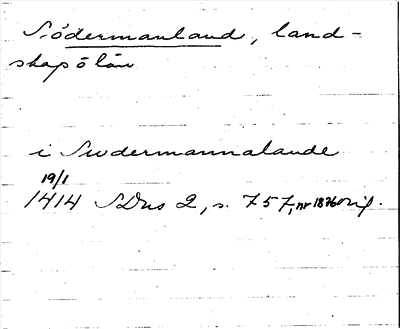 Södermanland, land-
skap o län
i Swdermannalande
19/1
1414 SDns 2, s. 757, nr 1876 orig.